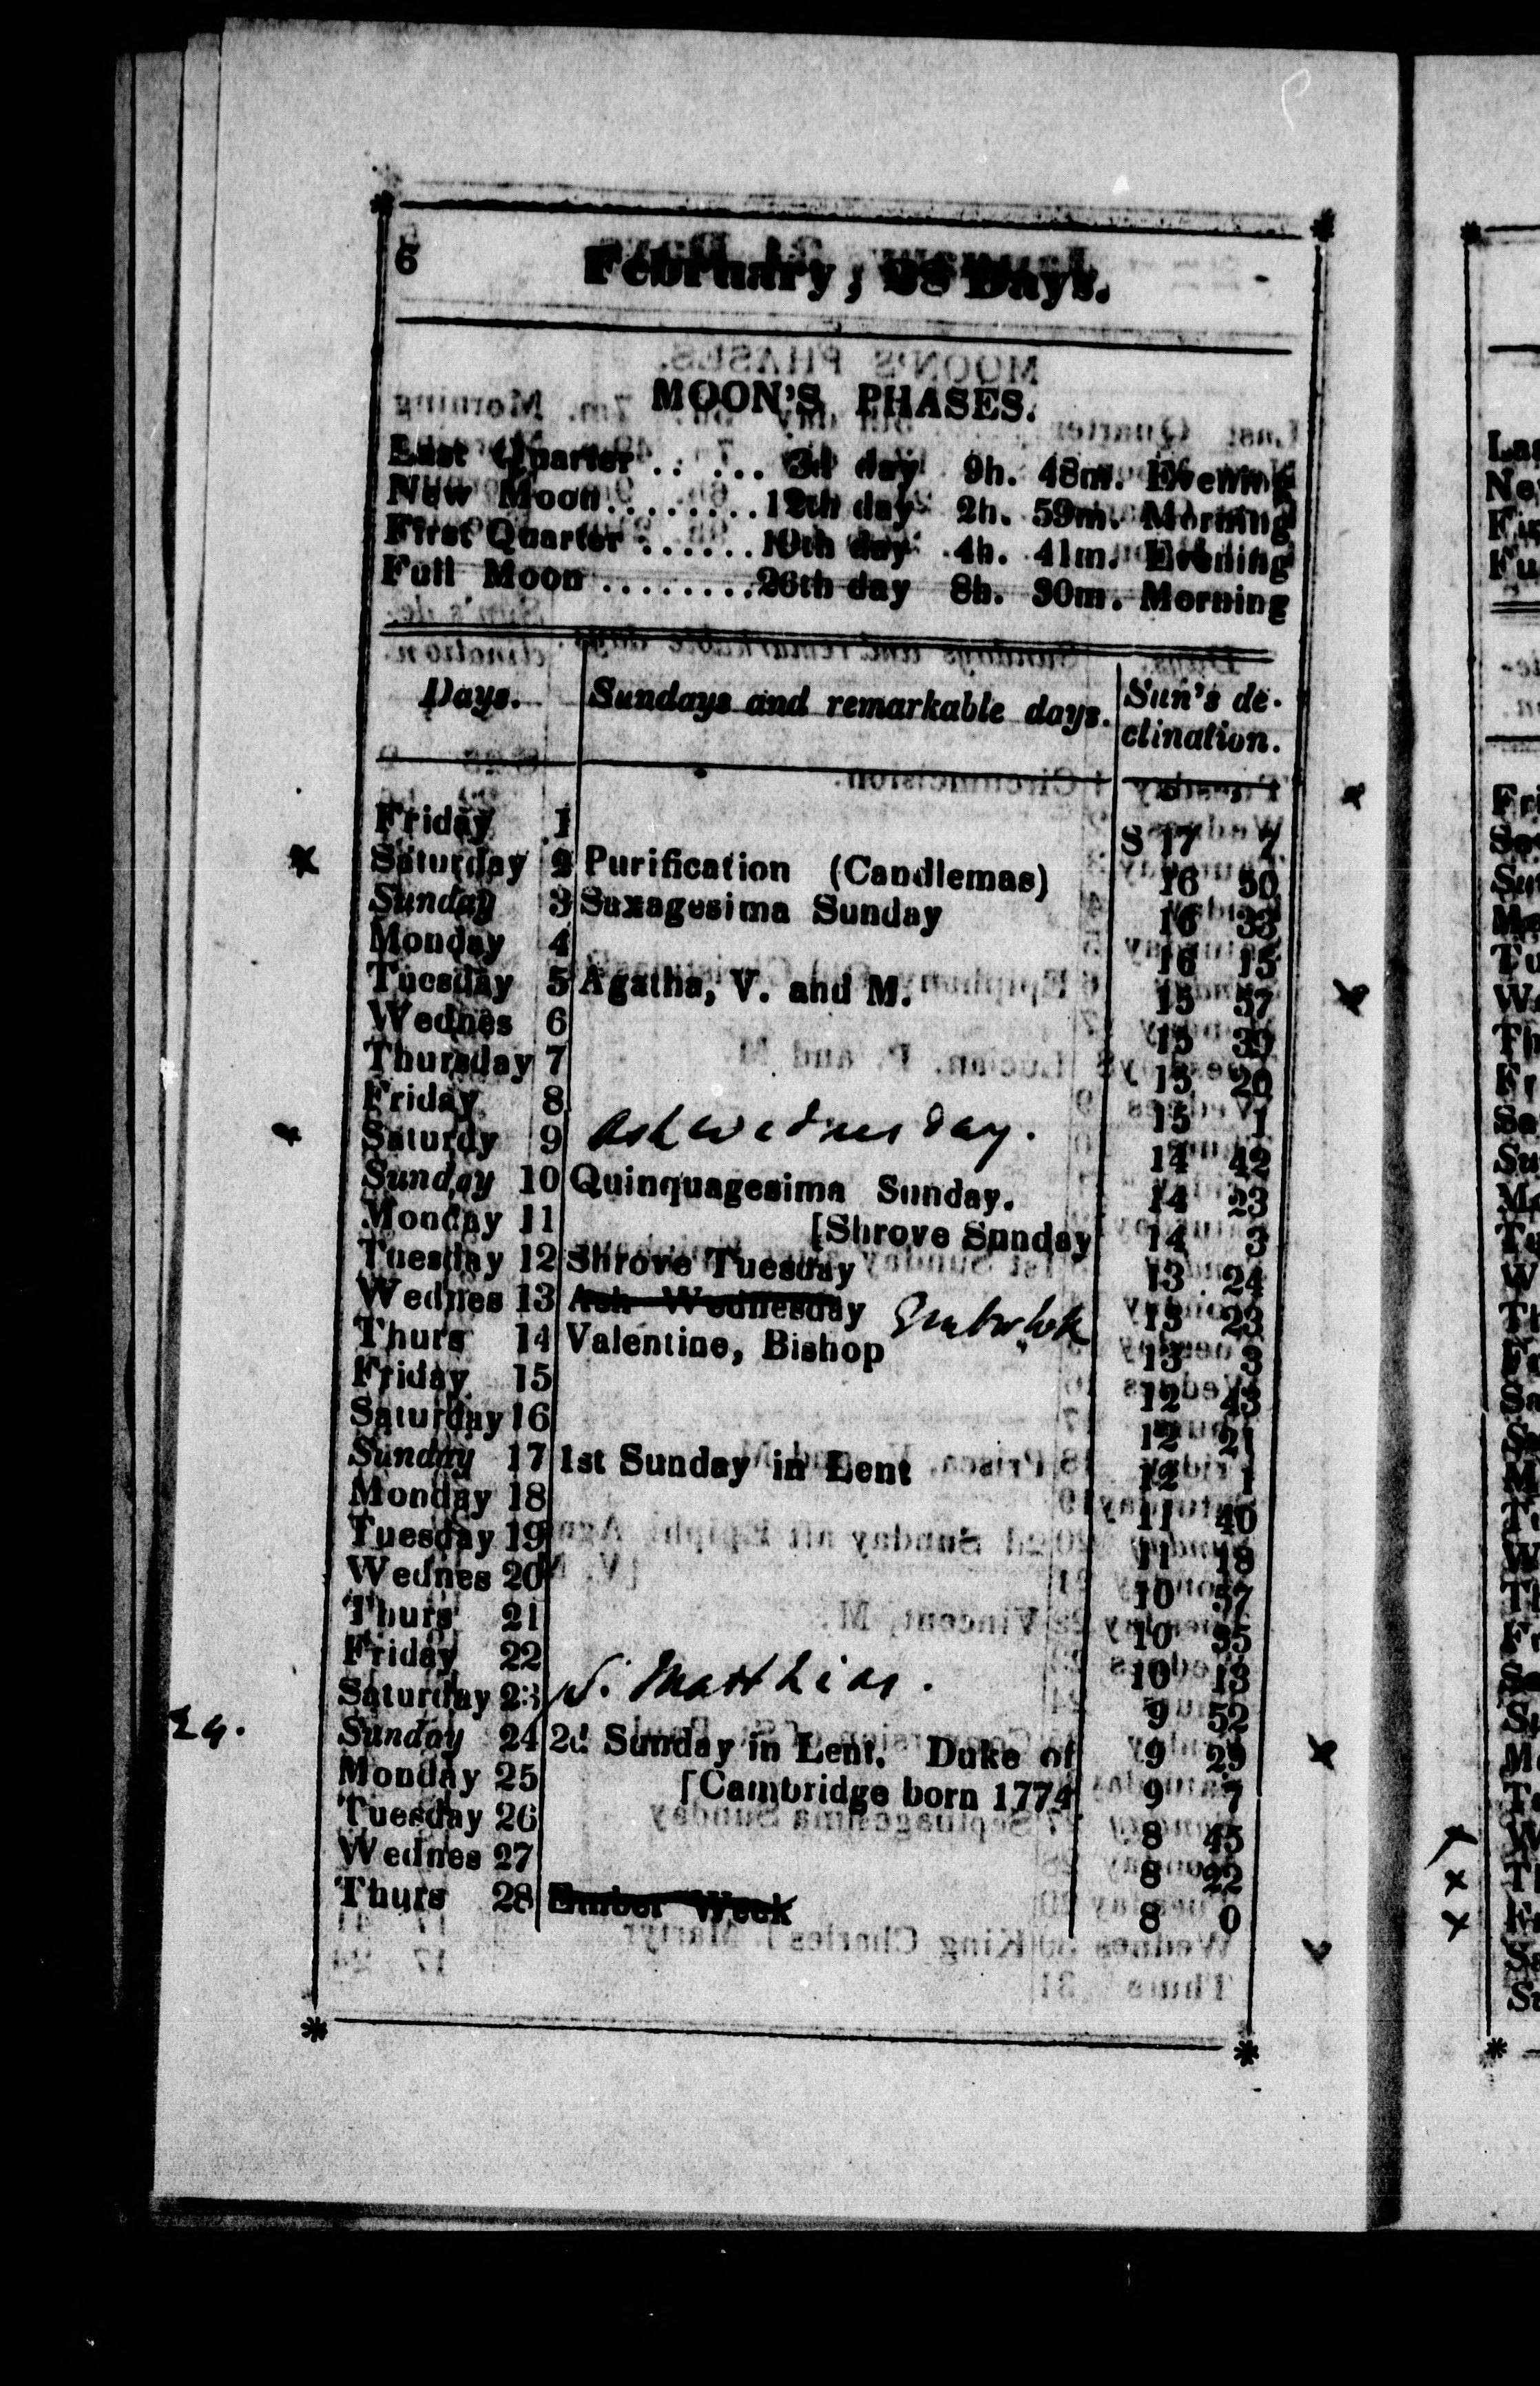 6
February, 28 Days.
MOON'S PHASES.
Last Quarter .. ... 3d day 9h. 48m. Evening
New Moon........12th day 2h. 59m. Morning
First Quarter ......19th day 4h. 41m. Evening
Full Moon ........26th day 8h. 30m. Morning
Days. Sundays and remarkable days. Sun's de-
clination.
Friday 1 S 17 7
Saturday 2 Purification (Candlemas) 16 50
Sunday 3 Sexagesima Sunday 16 33
Monday 4 16 15
Tuesday 5 Agatha, V. and M. 15 57
Wednes 6 15 39
Thursday 7 15 20
Friday 8 15 1
Saturdy 9 Ash Wednesday. 14 42
Sunday 10 Quinquagesima Sunday. 14 23
Monday 11 [Shrove Sunday 14 3
Tuesday 12 Shrove Tuesday 13 24
Wednes 13 Ash Wednesday 13 23
Thurs 14 Valentine, Bishop 13 3
Friday 15 12 43
Saturday 16 12 21
Sunday 17 1st Sunday in Lent 12 1
Monday 18 11 40
Tuesday 19 11 18
Wednes 20 10 57
Thurs 21 10 35
Friday 22 10 13
Saturday 23 S. Matthias. 9 52
24.
Sunday 24 2d Sunday in Lent. Duke of 9 29
Monday 25 [Cambridge born 1774 9 7
Tuesday 26 8 45
Wednes 27 8 22
Thurs 28 Ember Week 8 0